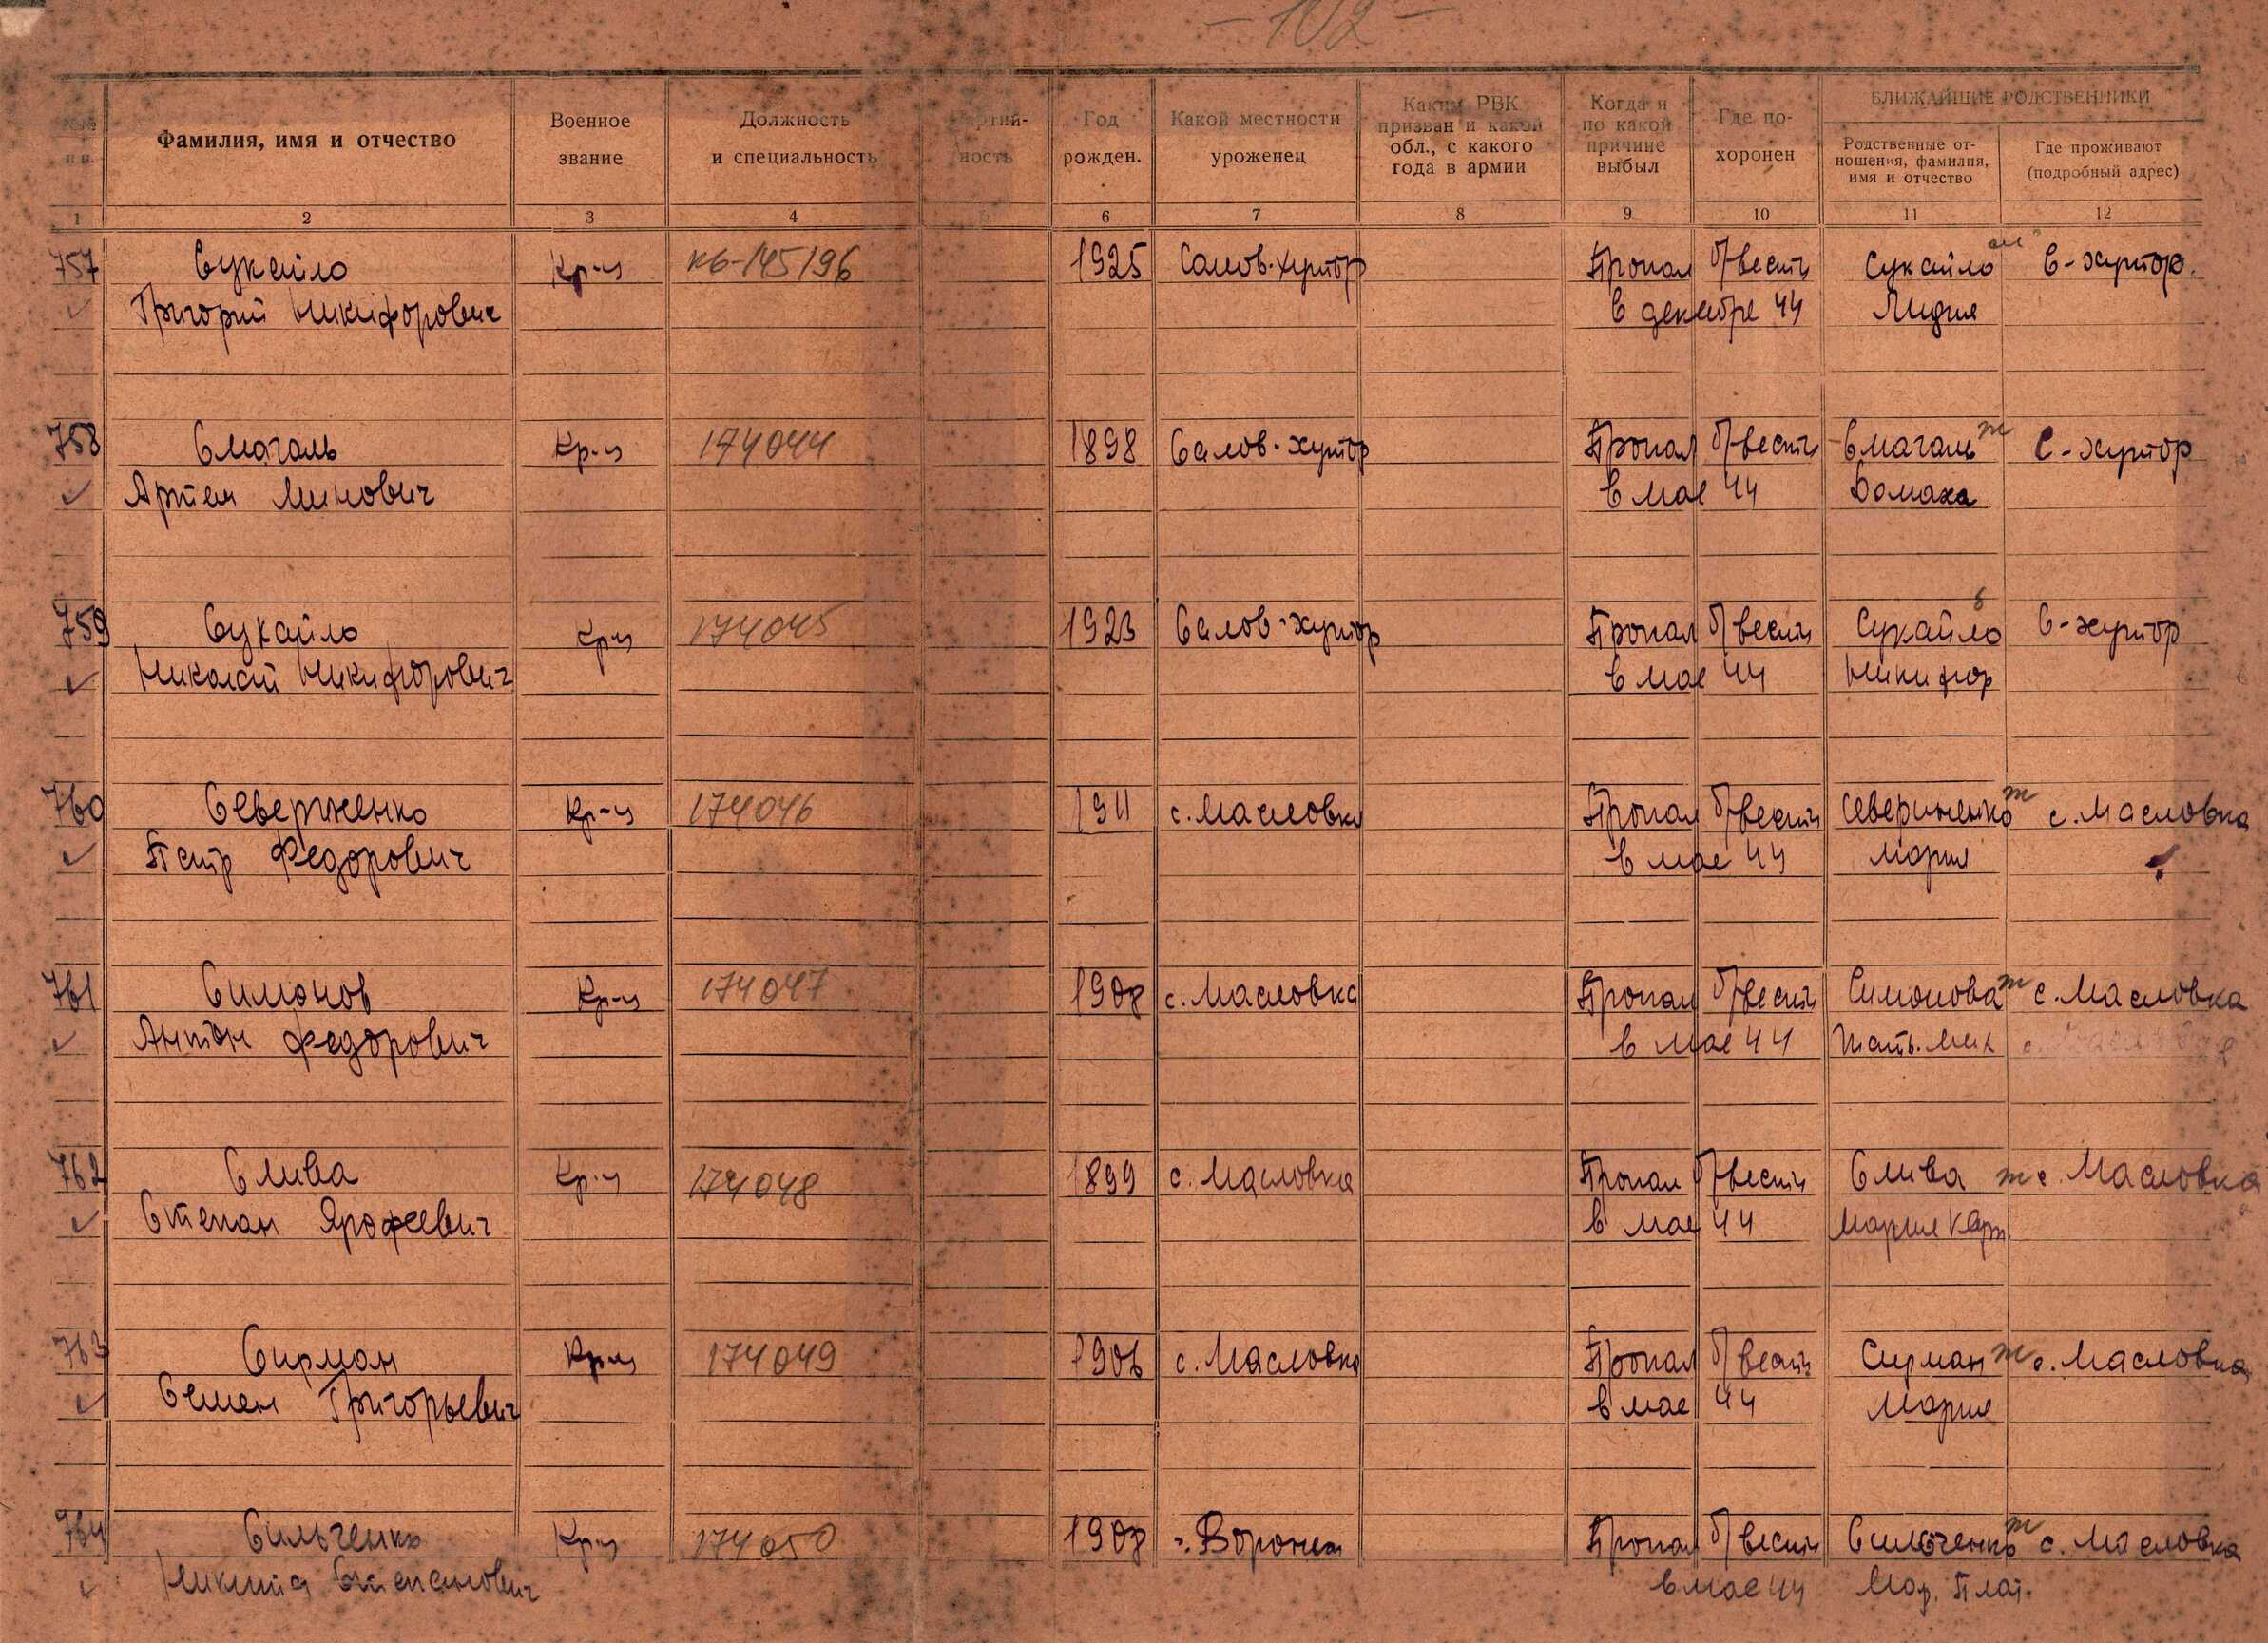 - 102 -
БЛИЖАЙШИЕ РОДСТВЕННИКИ
п п. Фамилия, имя и отчество Военное звание Должность и специальность ность Год рожден. Какой местности уроженец Каким РВК призван и какой обл., с какого года в армии Когда и по какой причине выбыл Где по- хоронен Родственные от- ношения, фамилия, имя и отчество Где проживают (подробный адрес)
1 2 3 4 5 6 7 8 9 10 11 12
757 Сукайло Кр-ц кв-145196 1925 Салов-хутор Пропал б/вести Сукайло С-хутор.
Григорий Никифорович в декабре 44 Лидия
758 Смагаль Кр-ц 174044 1898 Салов-хутор Пропал б/вести Смагаль ж С-хутор
Артем Минович в мае 44 Домаха
759 Сукайло Кр-ц 174045 1923 Салов-хутор Пропал б/вести Сукайло С-хутор
Николай Никифорович в мае 44 Никифор
760 Северженко Кр-ц 174046 1911 с. Масловка Пропал б/вести Севериненко ж с. Масловка
Петр Федорович в мае 44 Мария
761 Симонов Кр-ц 174047 1908 с. Масловка Пропал б/вести Симонова ж с. Масловка
Антон Федорович в мае 44 Мих
762 Слива Кр-ц 174048 1899 с. Масловка Пропал б/вести Слива ж с. Масловка
Степан Ярофеевич в мае 44 Мария Карп
763 Сирман Кр-ц 174049 1906 с. Масловка Пропал б/вести Сирман ж с. Масловка
Семен Григорьевич в мае 44 Мария
764 Сильченко Кр-ц 174050 1908 г. Воронеж Пропал б/вести Сильченко ж с. Масловка
Никита Степанович в мае 44 Мар. Плат.